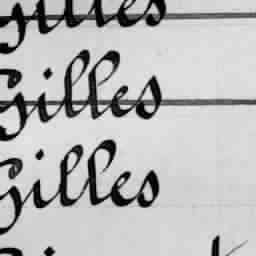 Gilles
Gilles
Gilles